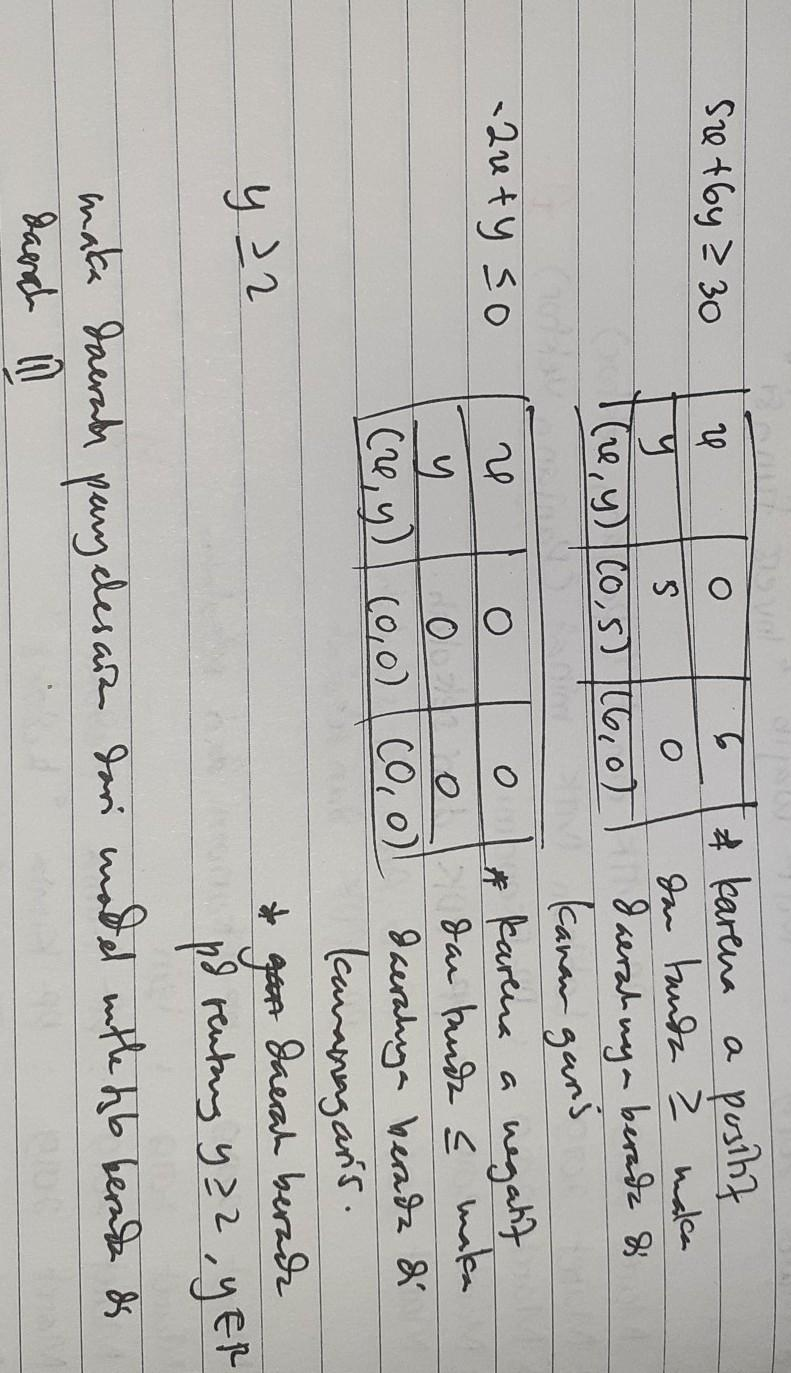 5x + 6y ≥ 30
x 0 6
y 5 0
(x, y) (0,5) (6,0)
* karena a positif
dan tanda ≥ maka
daerahnya berada di
kanan garis
-2x + y ≤ 0
x 0 0
y 0 0
(x, y) (0,0) (0,0)
* karena a negatif
dan tanda ≤ maka
daerahnya berada di
kanan garis.
y ≥ 2
* daerah berada
pd rentang y ≥ 2, y ∈ R
maka daerah penyelesaian dari model mtk tsb berada di
daerah III